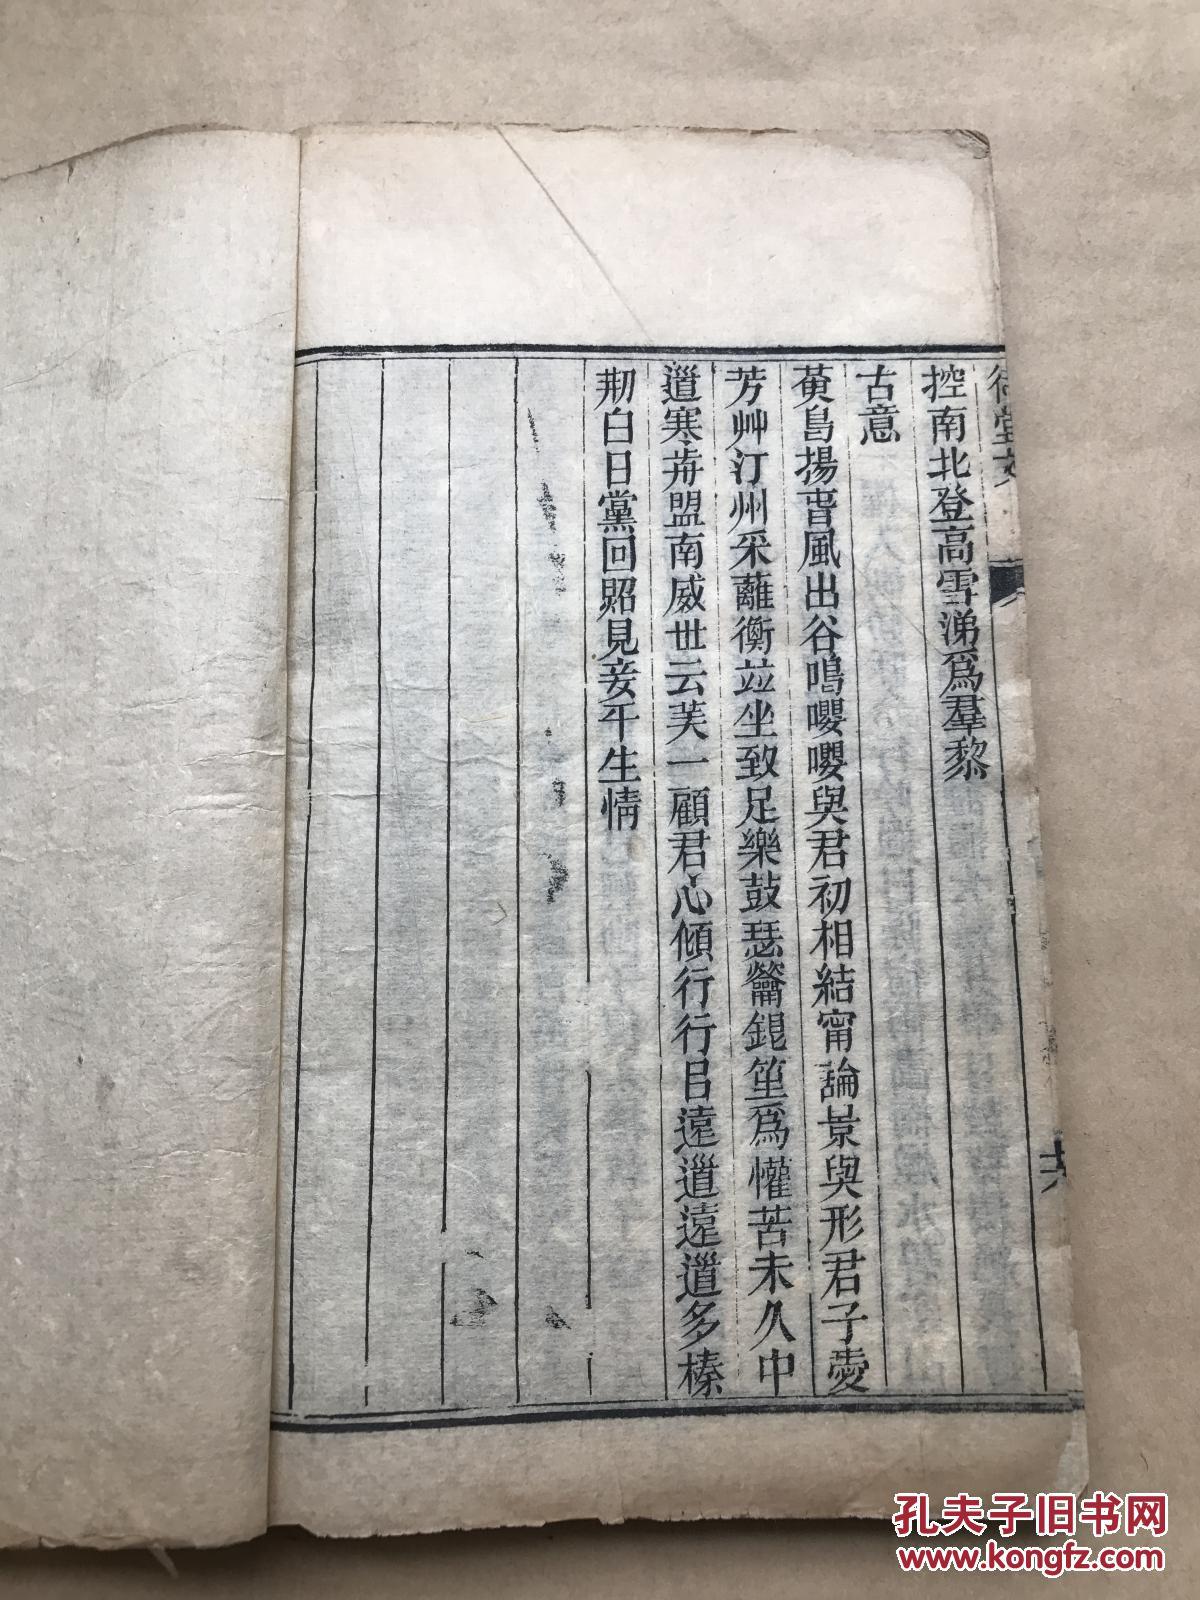 控南北登高雪涕爲羣黎
古意
黃鳥揚旾風出谷鳴嚶嚶與君初相結甯論景與形君子愛
芳艸汀州采蘺蘅竝坐致足樂鼓瑟龠鋧笙爲懽苦未久中
道寒歬盟南威世云美一顧君心傾行行㠯遠道遠道多榛
荆白日黨回照見妾平生情
孔夫子旧书网
www.kongfz.com